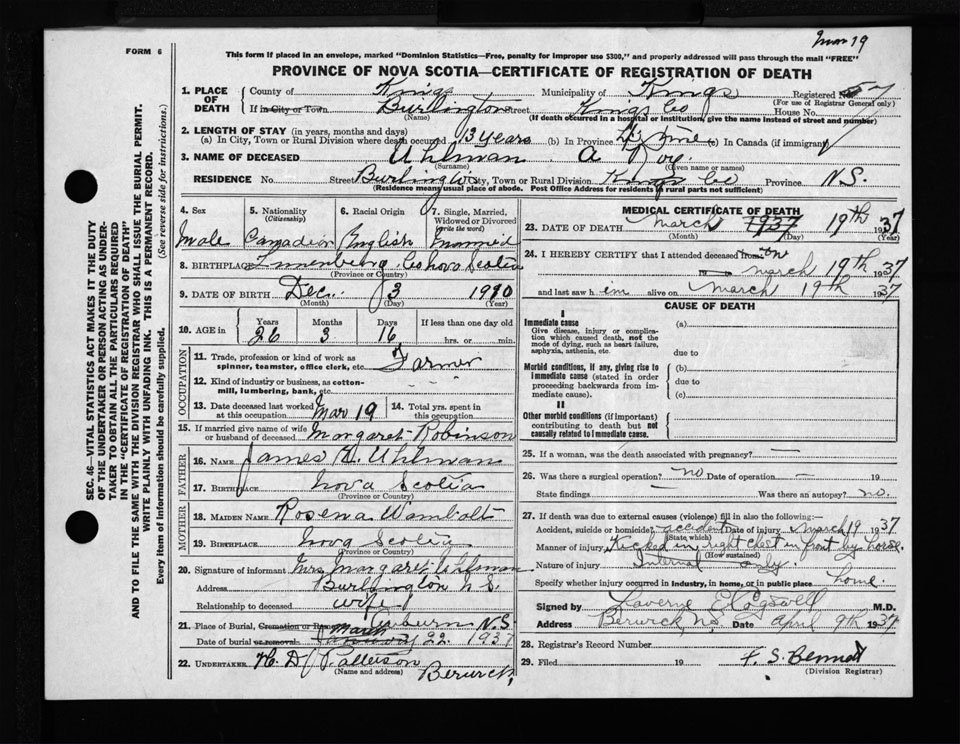 Mar 19
FORM 6
This form if placed in an envelope, marked "Dominion Statistics—Free, penalty for improper use $300," and properly addressed will pass through the mail "FREE"
PROVINCE OF NOVA SCOTIA—CERTIFICATE OF REGISTRATION OF DEATH
SEC. 46—VITAL STATISTICS ACT MAKES IT THE DUTY
OF THE UNDERTAKER OR PERSON ACTING AS UNDER-
TAKER TO OBTAIN ALL THE PARTICULARS REQUIRED
IN THE "CERTIFICATE OF REGISTRATION OF DEATH"
AND TO FILE THE SAME WITH THE DIVISION REGISTRAR WHO SHALL ISSUE THE BURIAL PERMIT.
WRITE PLAINLY WITH UNFADING INK. THIS IS A PERMANENT RECORD.
Every item of information should be carefully supplied. (See reverse side for instructions.)
1. PLACE OF DEATH
County of Kings Municipality of Kings Registered No. 57
(For use of Registrar General only)
If in City or Town Burlington Street Kings Co House No.
(Name) (If death occurred in a hospital or institution, give the name instead of street and number)
2. LENGTH OF STAY (in years, months and days)
(a) In City, Town or Rural Division where death occurred 13 years (b) In Province Life time (c) In Canada (if immigrant)
3. NAME OF DECEASED Uhlman A Roy
(Surname) (Given name or names)
RESIDENCE No. Street Burlington City, Town or Rural Division Kings Co Province N.S.
(Residence means usual place of abode. Post Office Address for residents in rural parts not sufficient)
4. Sex 5. Nationality (Citizenship) 6. Racial Origin 7. Single, Married, Widowed or Divorced (write the word)
Male Canadian English Married
8. BIRTHPLACE Lunenburg Co Nova Scotia
(Province or Country)
9. DATE OF BIRTH Dec. 3 1910
(Month) (Day) (Year)
10. AGE in Years Months Days If less than one day old
26 3 16 hrs. or min.
OCCUPATION
11. Trade, profession or kind of work as spinner, teamster, office clerk, etc. Farmer
12. Kind of industry or business, as cotton-mill, lumbering, bank, etc. - - -
13. Date deceased last worked at this occupation Mar 19 14. Total yrs. spent in this occupation
15. If married give name of wife or husband of deceased Margaret Robinson
FATHER
16. NAME James D. Uhlman
17. BIRTHPLACE Nova Scotia
(Province or Country)
MOTHER
18. MAIDEN NAME Rosena Wambolt
19. BIRTHPLACE Nova Scotia
(Province or Country)
20. Signature of informant Mrs. Margaret Uhlman
Address Burlington N S.
Relationship to deceased wife
21. Place of Burial, Cremation or Removal Auburn N.S.
Date of burial or removal March 22 1937
22. UNDERTAKER H. D. Patterson Berwick
(Name and address)
MEDICAL CERTIFICATE OF DEATH
23. DATE OF DEATH March 1937 19th 37
(Month) (Day) (Year)
24. I HEREBY CERTIFY that I attended deceased from on
19 March 19th 1937
and last saw him alive on March 19th 1937
CAUSE OF DEATH
I
Immediate cause
Give disease, injury or complication which caused death, not the mode of dying, such as heart failure, asphyxia, asthenia, etc.
(a)
due to
Morbid conditions, if any, giving rise to immediate cause (stated in order proceeding backwards from immediate cause).
(b)
due to
(c)
II
Other morbid conditions (if important) contributing to death but not causally related to immediate cause.
25. If a woman, was the death associated with pregnancy? —
26. Was there a surgical operation? no Date of operation 19
State findings Was there an autopsy? no.
27. If death was due to external causes (violence) fill in also the following:—
Accident, suicide or homicide? accident Date of injury March 19 1937
(State which)
Manner of injury Kicked in right chest in front by horse.
(How sustained)
Nature of injury Internal only.
Specify whether injury occurred in industry, in home, or in public place home.
Signed by Laverne E Cogswell M.D.
Address Berwick, N.S. Date April 9th 1937
28. Registrar's Record Number
29. Filed 19 F. S. Bennett
(Division Registrar)